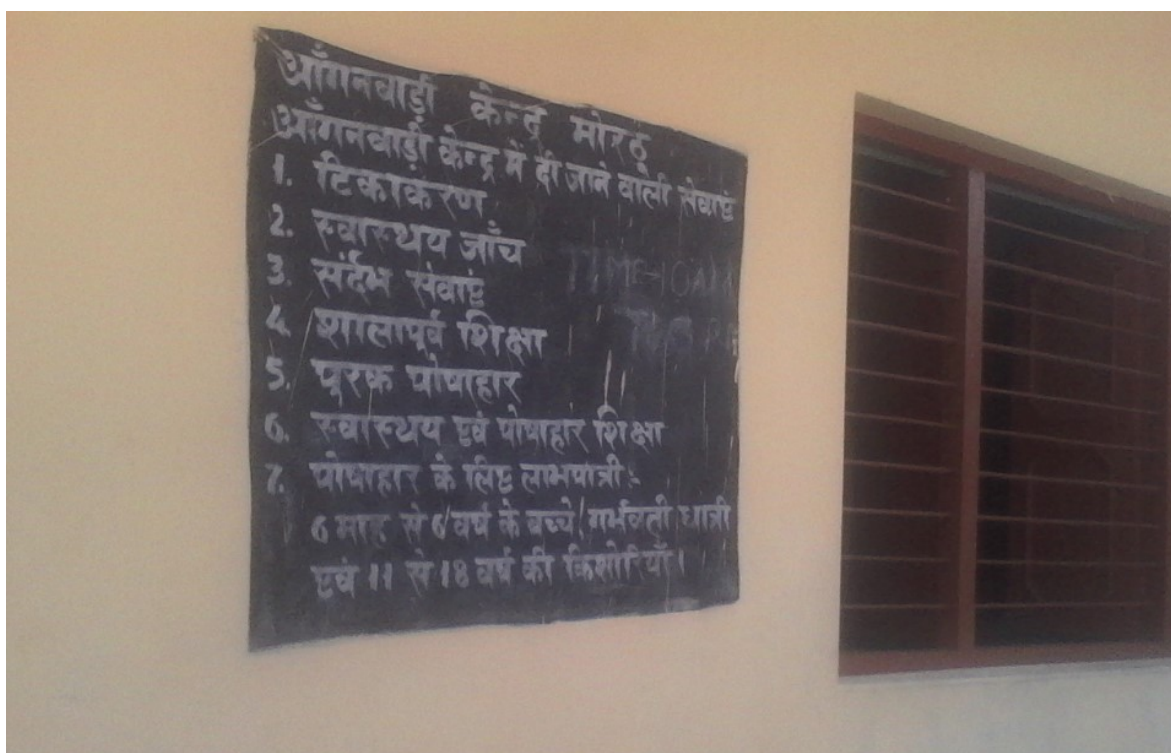 आँगनवाड़ी केन्द्र मोरठू
आँगनवाड़ी केन्द्र में दी जाने वाली सेवाएं
1. टिकाकरण
2. स्वास्थय जाँच
3. संर्दभ संवाएं
4. शालापूर्व शिक्षा
5. पूरक पोषाहार
6. स्वास्थय एवं पोषाहार शिक्षा
7. पोषाहार के लिए लाभपात्री :-
6 माह से 6 वर्ष के बच्चे/गर्भवती धात्री
एवं 11 से 18 वर्ष की किशोरियाँ।
TIME-10